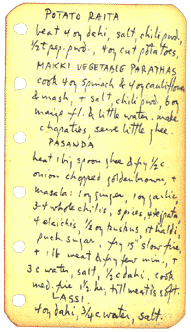 POTATO RAITA
beat 4 oz dahi, salt, chili pwd.
1/2t pep. pwd., 4 oz cut potatoes.
MAKKI VEGETABLE PARATHAS
cook 4 oz spinach & 4 oz cauliflower
& mash, + salt, chili pwd. 6 oz
maize fl. & little water. make
chapaties, serve little ghee.
PASANDA
heat 1 big spoon ghee & fry 1/2 c
onion chopped golden brown, +
masala: 1 oz ginger, 1 oz garlic,
3-4 whole chilis, spices, 4 tejpata,
4 elaichis, 1/2 oz 1t haldi,
pinch sugar. fry 15" slow fire,
+ 1 lb meat & fry few min., +
3 c water, salt, 1/2 c dahi. cook
med. fire 1 1/2 hr. till meat is soft.
LASSI
4 oz dahi, 3/4 c water, salt.